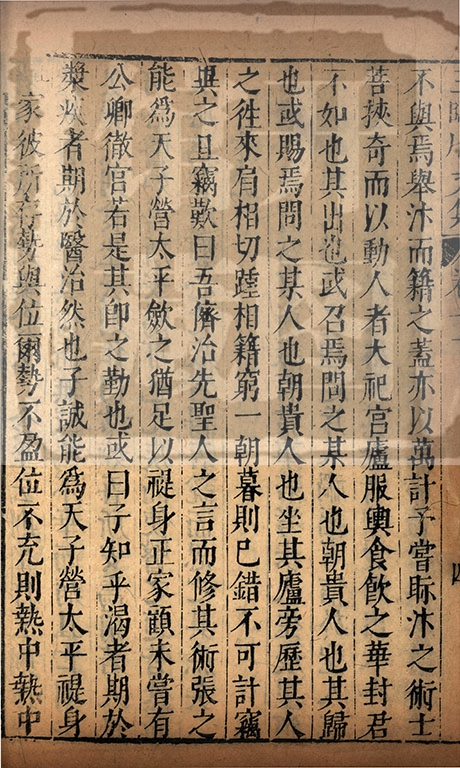 臨川文集 卷 四
不與焉舉汴而籍之蓋亦以萬計予嘗眎汴之術士
善挾奇而以動人者大祀宮廬服輿食飲之華封君
不如也其出也或召焉問之某人也朝貴人也其歸
也或賜焉問之某人也朝貴人也坐其廬旁歷其人
之徃來肩相切踵相籍窮一朝暮則已錯不可計竊
異之且竊歎曰吾儕治先聖人之言而修其術張之
能爲天子營太平斂之猶足以禔身正家顧未嘗有
公卿徹官若是其卽之勤也或曰子知乎渴者期於
漿疾者期於醫治然也子誠能爲天子營太平禔身
家彼所存勢與位爾勢不盈位不充則熱中熱中